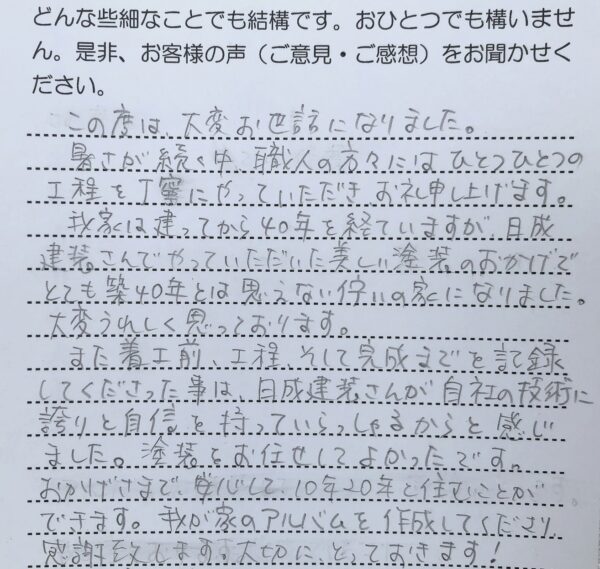 どんな些細なことでも結構です。おひとつでも構いませ
ん。是非、お客様の声（ご意見・ご感想）をお聞かせく
ださい。
この度は、大変お世話になりました。
暑さが続く中、職人の方々にはひとつひとつの
工程を丁寧にやっていただきお礼申し上げます。
我家は建ってから40年を経ていますが、日成
建装さんでやっていただいた美しい塗装のおかげで
とても築40年とは思えない佇いの家になりました。
大変うれしく思っております。
また着工前、工程、そして完成までを記録
してくださった事は、日成建装さんが自社の技術に
誇りと自信を持っていらっしゃるからと感じ
ました。塗装をお任せしてよかったです。
おかげさまで、安心して10年20年と住むことが
できます。我が家のアルバムを作成してくださり、
感謝致します。大切にとっておきます！